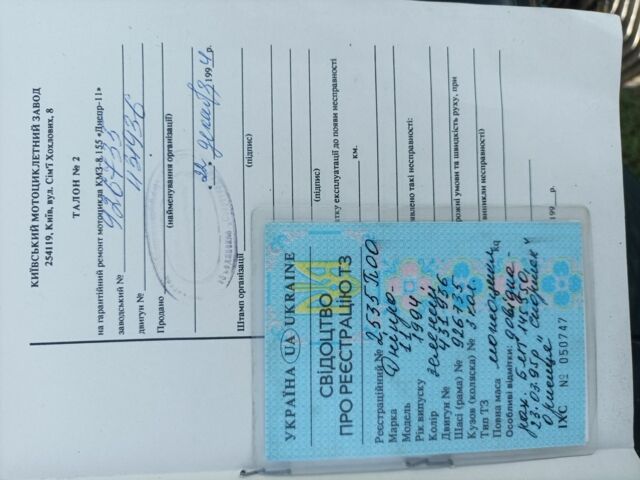 КИЇВСЬКИЙ МОТОЦИКЛЕТНИЙ ЗАВОД
254119, Київ, вул. Сім'ї Хохлових, 8
ТАЛОН № 2
на гарантійний ремонт мотоцикла КМЗ-8.155 «Днепр-11»
заводський № 926735
двигун №
Продано
(найменування організації)
" 22 " декабря 1994 р.
Штамп організації
(підпис)
(підпис)
тку експлуатації до появи несправності
км.
влено такі несправності:
рожні умови та швидкість руху, при
виникли несправності
199 р.
УКРАЇНА UA UKRAINE
СВІДОЦТВО
ПРО РЕЄСТРАЦІЮ ТЗ
Реєстраційний № 2535 ПОО
Марка Днипро
Модель 11
Рік випуску 1994
Колір зелений
Двигун №
Шасі (рама) № 926735
Кузов (коляска) № з кол.
Тип ТЗ мотоцикл
Повна маса кг
Особливі відмітки: довідка
23.03.95р
IXC № 050747